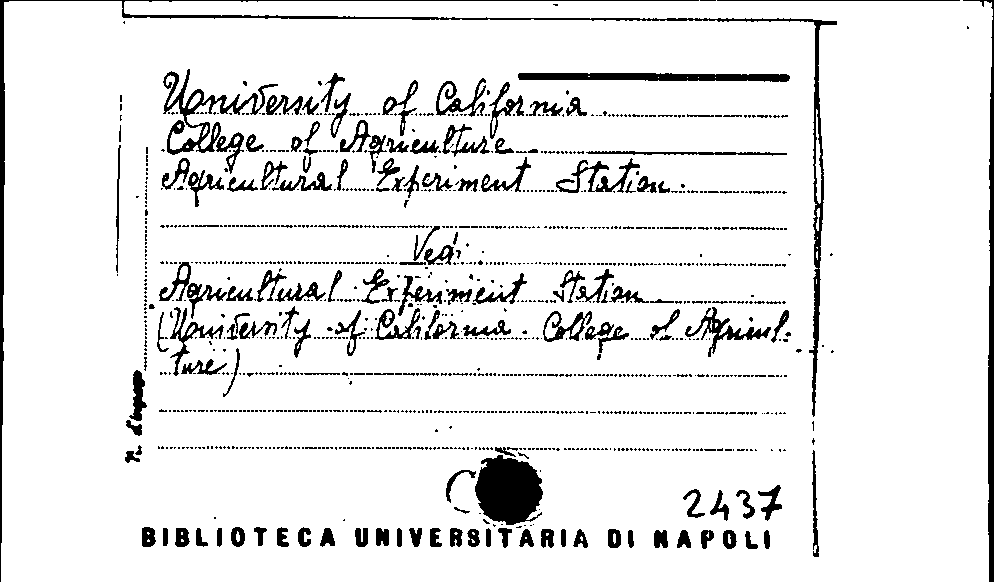 University of California.
College of Agriculture.
Agricultural Experiment Station.
Vedi:
Agricultural Experiment Station.
(University of California. College of Agricul-
ture)
N. d'ingresso
2437
BIBLIOTECA UNIVERSITARIA DI NAPOLI